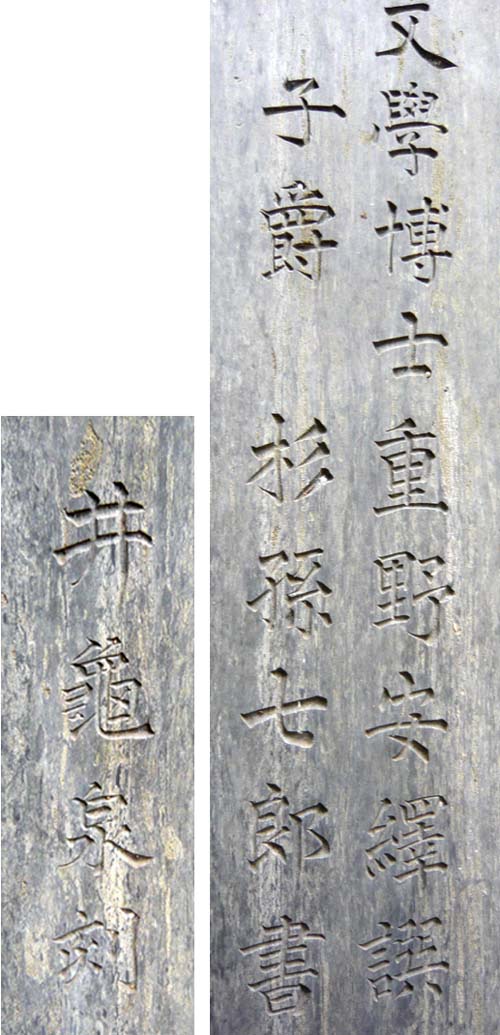 文學博士重野安繹譔
子爵 杉孫七郎書
井龜泉刻